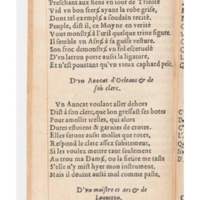 Preschant aux bens en tour de Troioe
Vid vn bon frere ayant la robe grise,
Dont tel exemple a soudain recité.
Peuple, dist il, ce Moyne en verité
Vous monstre à l'œil quelque terre figure.
Il semble vn Asne à sa guise vesture.
Son froc demonstre vn fol
D'vn larron porte aussi la ligature.
Et n'est pourtant qu'vn vieux caphard pelé.
D'vn Auocat d'Orleans & de
son clerc.
Vn Auocat voulant aller dehors
Dist à son clerc, que lon gressast ses botes
Pour amollir icelles, qui alors
Dures estoient & garnies de crotes.
Elles seront aussi molles que rotes,
Respond le clerc assez subitement,
Si les voulez mettre tant seulement
Au trou ma Dame, ou la seure ne taste
S'elle n'y mist hyer mon instrument.
Mais il deuint aussi mol comme paste.
D'vn maistre es ars & de